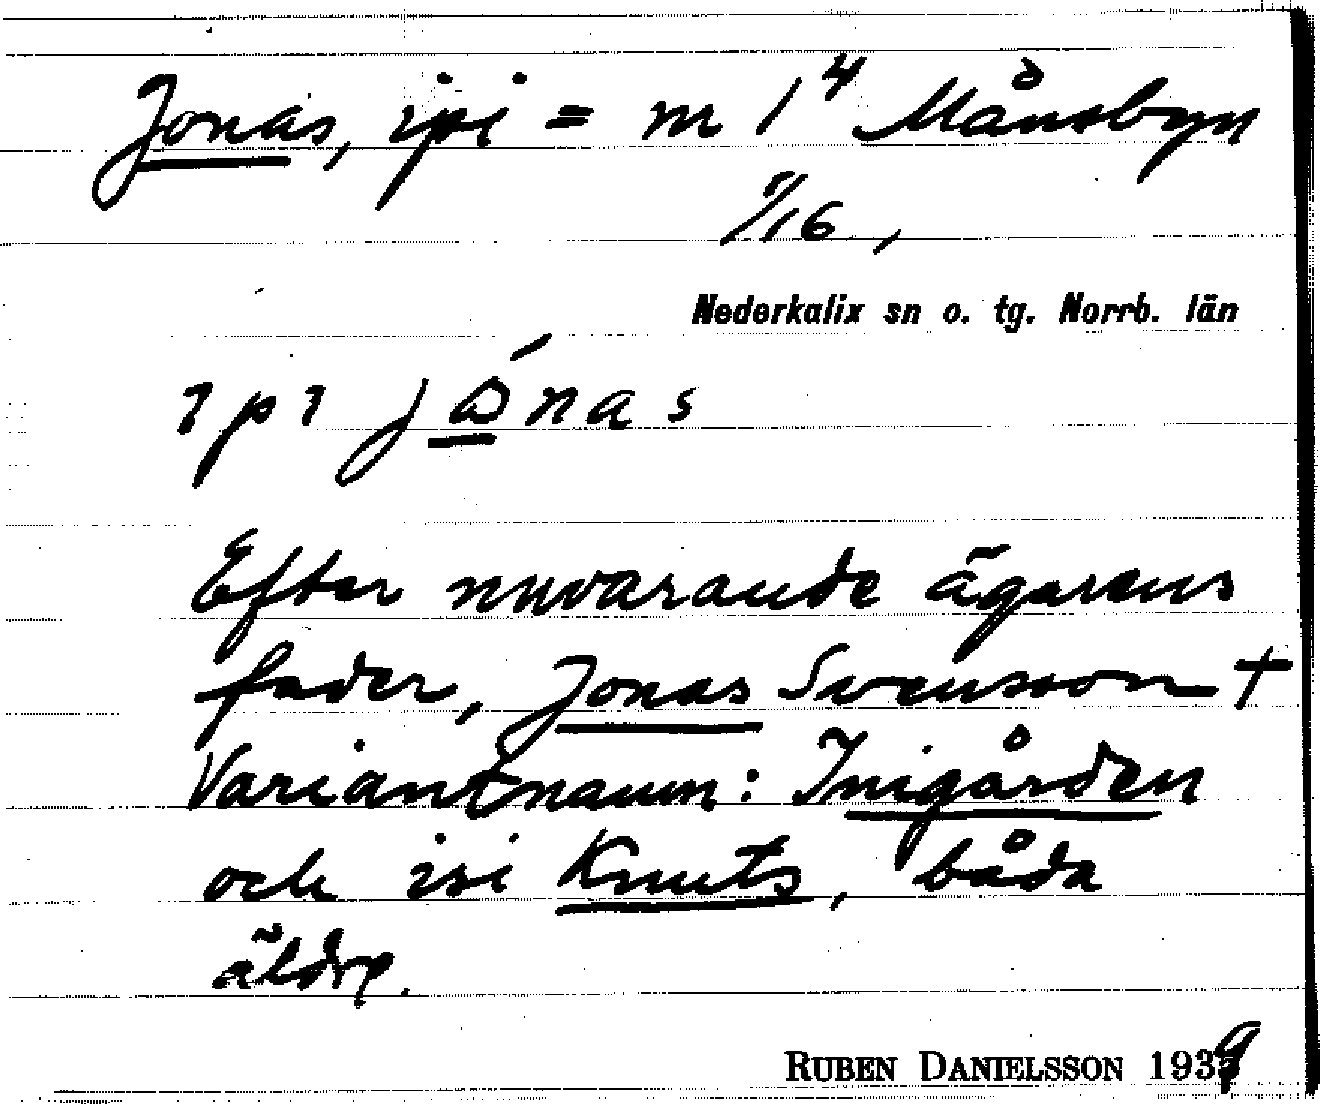 Jonas, ipi = nr 1⁴ Månsbyn
1/16,
Nederkalix sn o. tg. Norrb. län
ıpı jónas
Efter nuvarande ägarens
fader, Jonas Svensson †
Variantnamn: Inigården
och isi Knuts, båda
äldre.
RUBEN DANIELSSON 1939